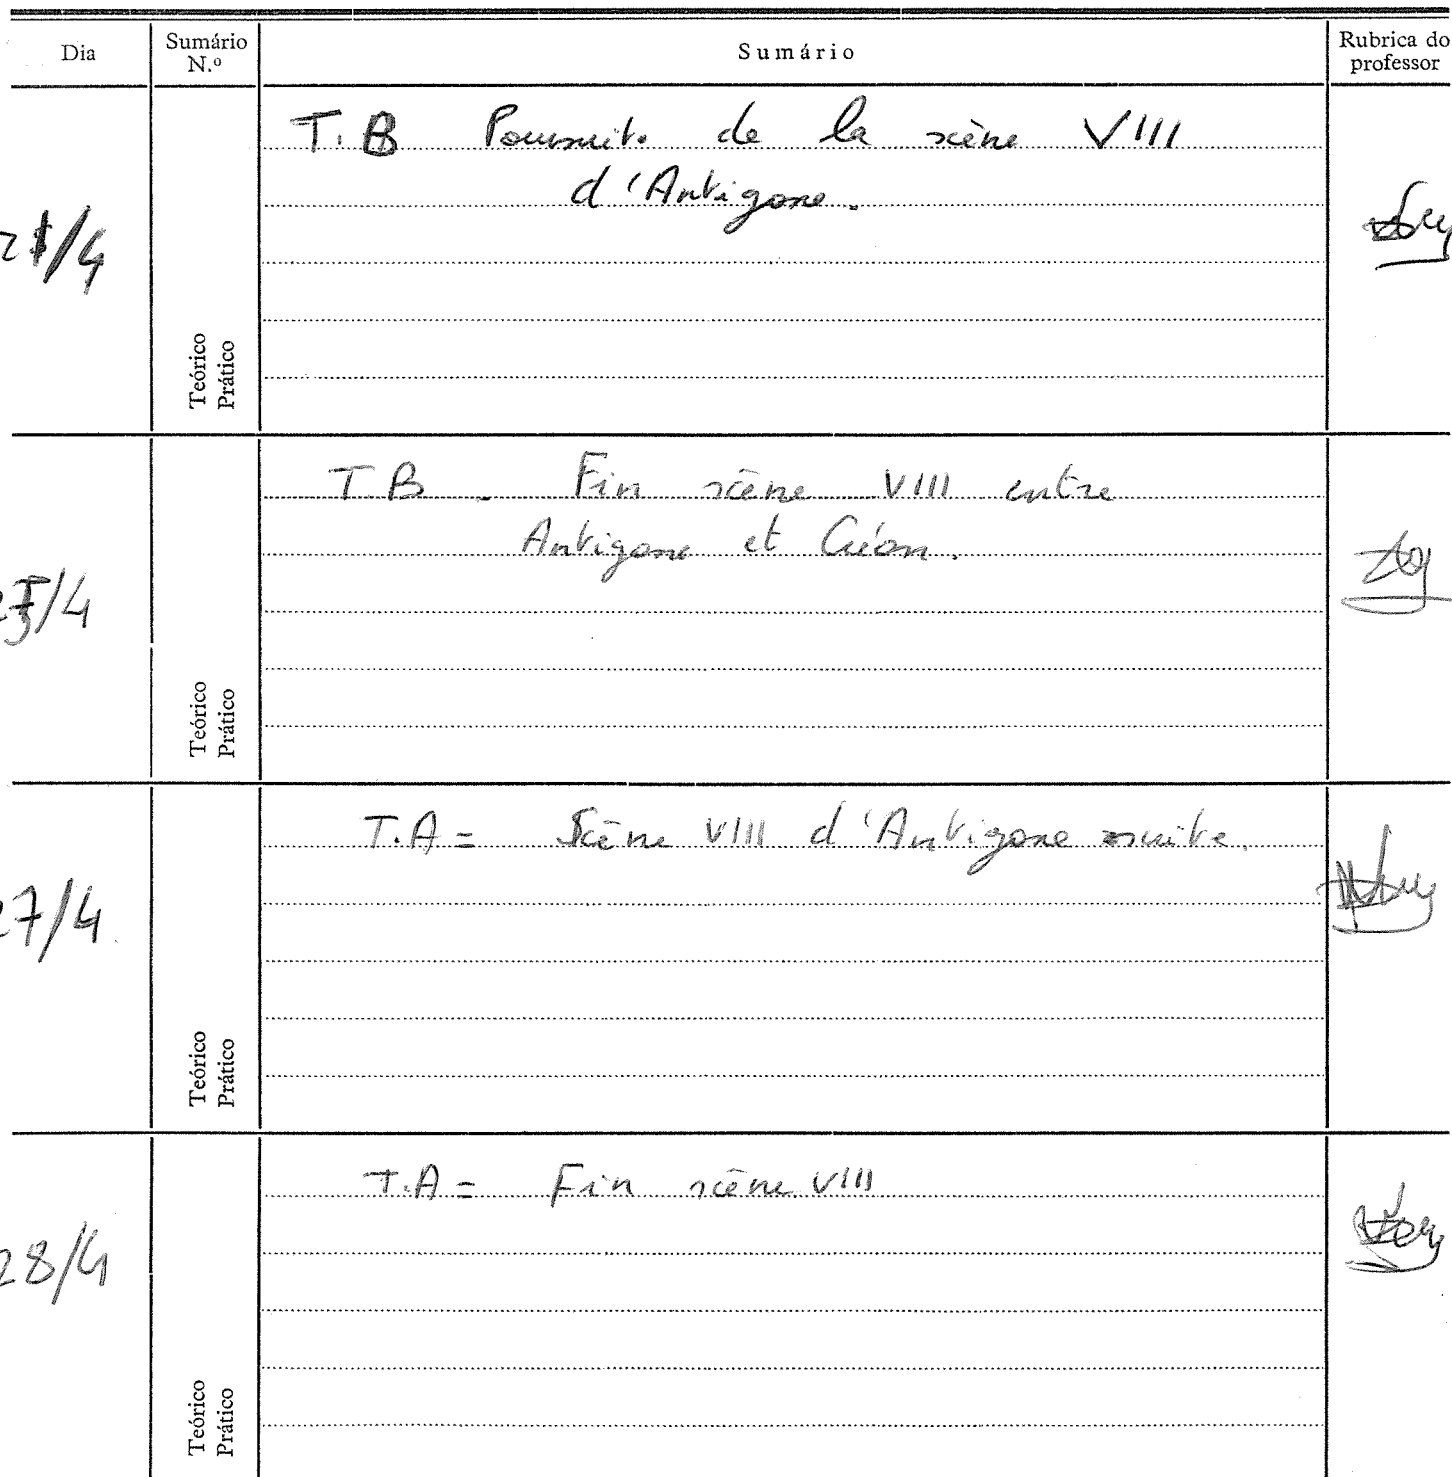 Dia
Sumário N.º
Sumário
Rubrica do professor
T. B Poursuite de la scène VIII
d'Antigone.
21/4
Teórico
Prático
T B - Fin scène VIII entre
Antigone et Créon.
/4
Teórico
Prático
T.A = Scène VIII d'Antigone suite.
27/4
Teórico
Prático
T.A = Fin scène VIII
28/4
Teórico
Prático